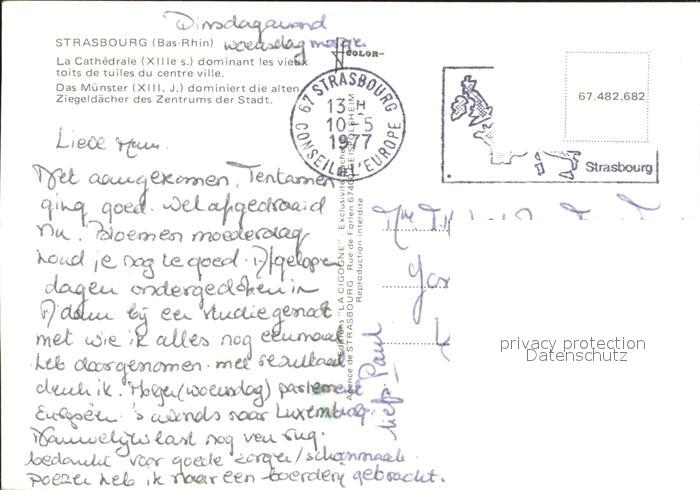 Dinsdagavond
woensdag morge
STRASBOURG (Bas-Rhin)
COLOR-
La Cathédrale (XIIIe s.) dominant les vieux
toits de tuiles du centre ville.
Das Münster (XIII. J.) dominiert die alten
Ziegeldächer des Zentrums der Stadt.
67 STRASBOURG
13 H
10-5
1977
CONSEIL DE L'EUROPE
67.482.682
Strasbourg
Lieve Mam.
Net aangekomen. Tentamen
ging goed. Wel afgedraaid
nu. Bloemen moederdag
houd je nog te goed. Afgelopen
dagen ondergedoken in
A'dam bij een studiegenoot
met wie ik alles nog eenmaal
heb doorgenomen. met resultaat
denk ik. Morgen (woensdag) parlement
Européen. 's avonds naar Luxemburg.
Nauwelijks last nog van rug.
bedankt voor goede zorgen/schoonmaak.
poezen heb ik naar een boerderij gebracht.
liefs Paul
Editions "LA CIGOGNE" Exclusivité
Agence de STRASBOURG Rue de Forlen 67400 GEISPOLSHEIM
Reproduction interdite
privacy protection
Datenschutz